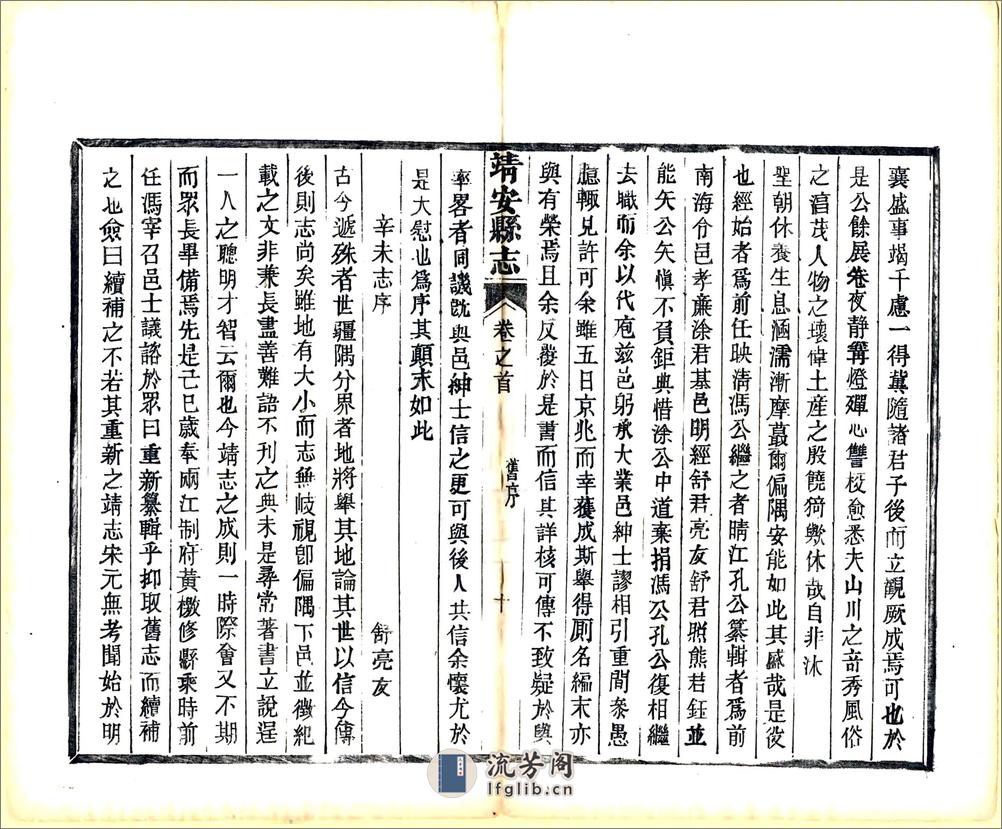 襄盛事竭千慮一得冀隨諸君子後而立覩厥成焉可也於
是公餘展卷夜靜篝燈殫心讐校愈悉夫山川之奇秀風俗
之淳茂人物之瓌偉土産之殷饒猗歟休哉自非沐
聖朝休養生息涵濡漸摩蕞爾偏隅安能如此其盛哉是役
也經始者爲前任映清馮公繼之者晴江孔公纂輯者爲前
南海令邑孝廉涂君基邑明經舒君亮友舒君照熊君鈺並
能矢公矢愼不負鉅典惜涂公中道棄捐馮公孔公復相繼
去職而余以代庖兹邑躬承大業邑紳士謬相引重間叅愚
臆輒見許可余雖五日京兆而幸獲成斯舉得厠名編末亦
與有榮焉且余反覆於是書而信其詳核可傳不致疑於與
率畧者同譏旣與邑紳士信之更可與後人共信余懷尤於
是大慰也爲序其顛末如此
辛未志序
舒亮友
古今遞殊者世疆隅分界者地將舉其地論其世以信今傳
後則志尚矣雖地有大小而志無岐視卽偏隅下邑並徵紀
載之文非兼長盡善難語不刊之典未是尋常著書立說逞
一人之聰明才智云爾也今靖志之成則一時際會又不期
而眾長畢備焉先是己巳歲奉兩江制府黃檄修縣乘時前
任馮宰召邑士議諮於眾曰重新纂輯乎抑取舊志而續補
之也僉曰續補之不若其重新之靖志宋元無考聞始於明
靖安縣志
卷之首
舊序
十
流芳阁
lfglib.cn